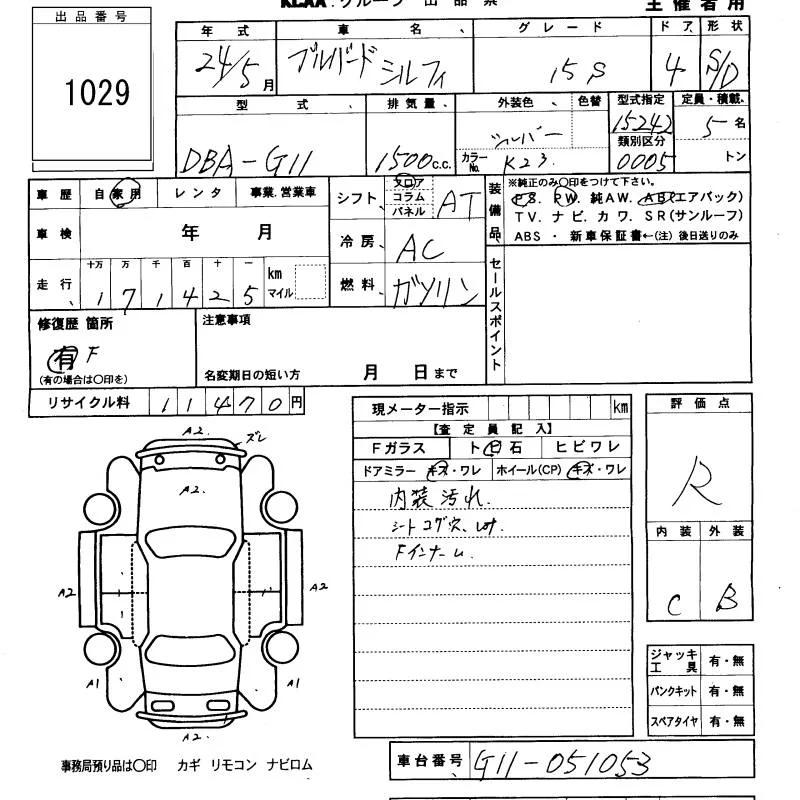 KCAA グループ 出品票
主催者用
出品番号
1029
年式 車名 グレード ドア 形状
24/5月 ブルーバードシルフィ 15S 4 S/D
型式 排気量 外装色 色替 型式指定 定員・積載
DBA-G11 1500c.c. シルバー 15242 5名
カラーNo. K23 類別区分 0005 トン
車歴 自家用 レンタ 事業.営業車
シフト フロア コラム パネル AT
装備品 ※純正のみ○印をつけて下さい。
PS. PW. 純AW. AB(エアバック)
TV. ナビ. カワ. SR(サンルーフ)
ABS ・ 新車保証書←(注)後日送りのみ
車検 年 月
冷房 AC
走行 十万 万 千 百 十 一
171425 km マイル
燃料 ガソリン
セールスポイント
修復歴 箇所
有 F
(有の場合は○印を)
注意事項
名変期日の短い方 月 日まで
リサイクル料 11470円
現メーター指示 km
【査定員記入】
Fガラス ト目石 ヒビワレ
ドアミラー キズ・ワレ ホイール(CP) キズ・ワレ
内装汚れ.
シートコゲ穴、
Fインナー
評価点
R
内装 外装
C B
A2. ズレ
A2.
A2 A2
A1 A1
A2.
ジャッキ工具 有・無
パンクキット 有・無
スペアタイヤ 有・無
事務局預り品は○印 カギ リモコン ナビロム
車台番号 G11-051053